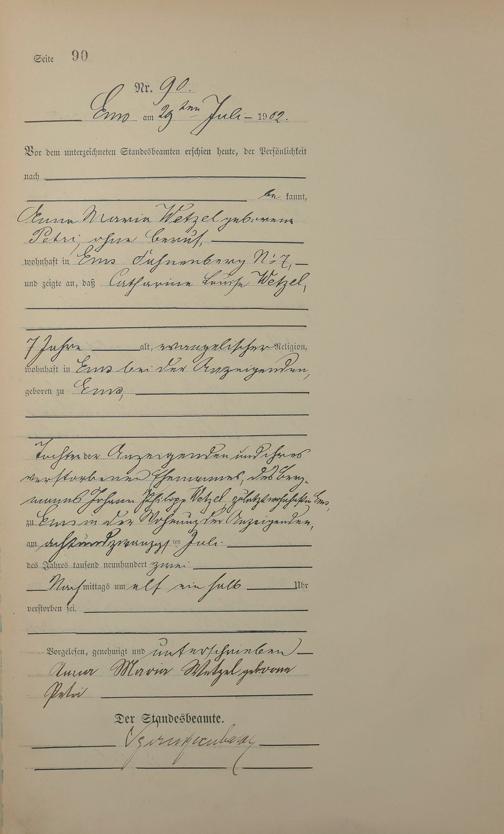 Seite 90
Nr. 90.
Ems am 29ten Juli 1902.
Vor dem unterzeichneten Standesbeamten erschien heute, der Persönlichkeit
nach
be kannt,
Anna Maria Wetzel geborene
Petri, ohne Beruf,
wohnhaft in Ems No 7,
und zeigte an, daß Catharine Louise Wetzel,
7 Jahre alt, evangelischer Religion,
wohnhaft in Ems bei der Anzeigenden,
geboren zu Ems,
Tochter der Anzeigenden und ihres
verstorbenen Ehemannes, des Berg-
manns Johann Philipp Wetzel, zuletzt wohnhaft in Ems,
zu Ems in der Wohnung der Anzeigenden,
am achtundzwanzigsten Juli
des Jahres tausend neunhundert zwei
Nachmittags um elf ein halb Uhr
verstorben sei.
Vorgelesen, genehmigt und unterschrieben
Anna Maria Wetzel geborene
Petri
Der Standesbeamte.